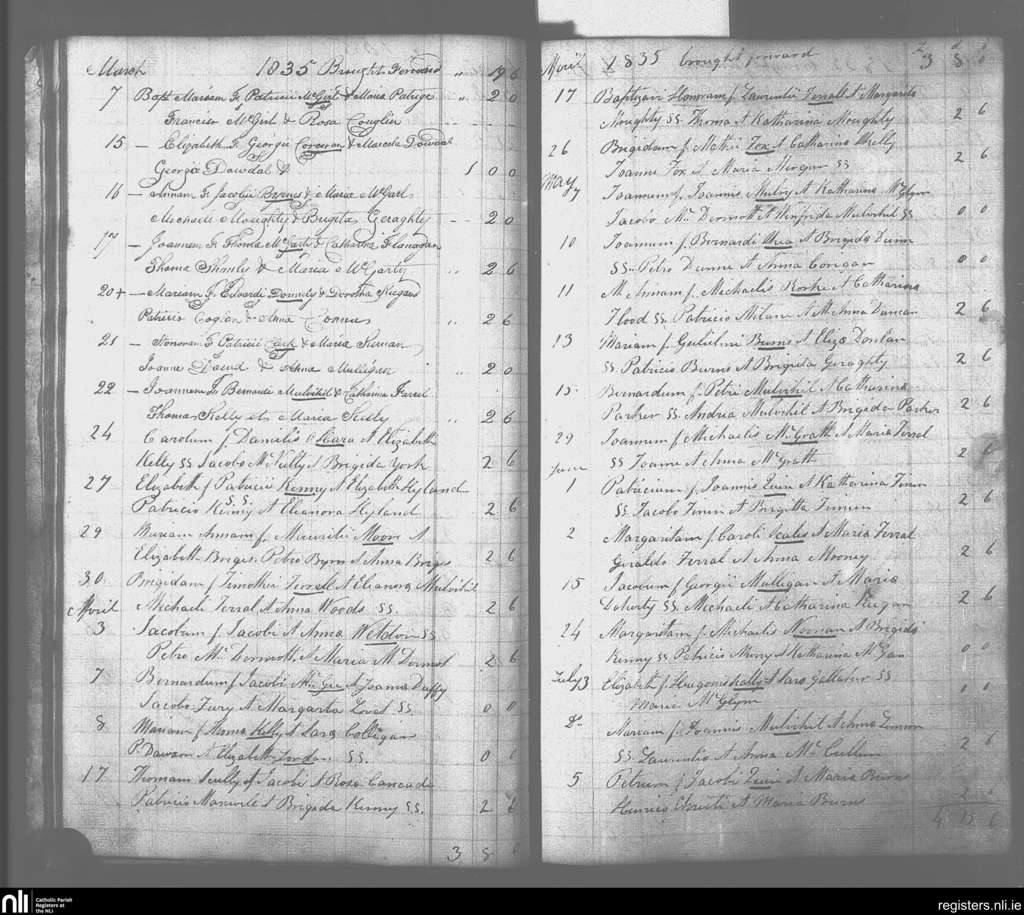 March 1835 Brought Forward " 19 6
7 Bapt Mariam F. Patricii McGirl & Maria Patrige " 2 0
Francisco McGirl & Rosa Coughlin
15 — Elizabeth F. Georgii Corcoran & Dowdal
Georgio Dowdal & 1 0 0
16 — Annam F. Jacobii Byrnes & Maria McGarl
Michaele Moughty & Brigita Geraghty 2 0
17 — Joannem F. Thoma McGarty & Catharina Flanagan
Thoma Shanly & Maria McGarty 2 6
20+ — Mariam F. Edvardi & Dorothea Kiegans
Patricio Coglan & Anna 2 6
21 — Honoram F. Patricii & Maria Kernan
Joanne David & Anna Mulligan 2 0
22 — Joannem F. Bernardi Mulvihil & Catharina Farrel
Thomas Kelly et Maria Kelly 2 6
24 Carolum f. Danielis O'Hara et Elizabeth
Kelly SS. Jacobo McNully et Brigida York 2 6
27 Elizabeth f Patricii Kenny et Elizabeth Hyland
S.S.
Patricio Kenny et Eleanora Hyland 2 6
29 Mariam Annam f. Mauritii Moore et
Elizabeth Borges. Petro Byrn et Anna Borges 2 6
30 Brigidam f Timothei Ferrell et Eleanora Mulvihil
April Michaeli Ferral et Anna Woods SS. 2 6
3 Jacobum f Jacobi et Anna Weldon SS
Petro McDermott et Maria McDermot 2 6
7 Bernardum f. Jacobi McGee et Joanna Duffy
Jacobo Fury et Margarita SS. 0 0
8 Mariam f Thoma Kelly et Sara Colligan
P. Dawson et Elizabeth Jordan SS. 0 0
17 Thomam Scully f Jacobi et Rosa Cancade
Patricio Maxwell et Brigida Kenny SS. 2 6
3 8 0
April 1835 brought forward £3 8 0
17 Baptizavi Honoram f. Laurentii Ferrall et Margarita
Moughty SS. Thoma et Katharina Moughty 2 6
26 Brigidam f Mattei Fox et Catharina Skelly
Joanne Fox et Maria Morgan SS 2 6
May
7 Joannem f. Joannis et Katharina McGlynn
Jacobo McDermott et Winifrida Mulvihil SS 0 0
10 Joannem f. Bernardi et Brigida Dunn
SS. Petro Dunne et Anna Corrigan 0 0
11 M. Annam f. Michaelis Rorke et Catharina
Flood SS. Patricio Milan et M. Anna Duncan 2 6
13 Mariam f. Gulielmi Burns et Eliza Donlan
SS. Patricio Burns et Brigida Geraghty 2 6
15 Bernardum f. Petri Mulvihil et Catharina
Parker SS. Andrea Mulvihil et Brigida Parker 2 6
29 Joannem f Michaelis McGrath et Maria Ferral
SS Joanne et Anna McGrath 2 6
June
1 Patricium f. Joannis et Katharina
SS. Jacobo et Birgitta 2 6
2 Margaritam f. Caroli Scales et Maria Ferral
Geraldo Ferral et Anna Mooney 2 6
15 Jacobum f Georgii Mulligan et Maria
Doherty SS. Michaeli et Catharina Keegan 2 6
24 Margaritam f Michaelis Noonan et Brigida
Kenny SS Patricio et Katharina McGan 0 0
July 3 Elizabeth f. Hugonis Kelly et Sara Gallaher SS
Maria McGlynn 0 0
Do Mariam f Joannis Mulvihil et Anna Lennon
SS. Laurentio et Anna McCullen 2 6
5 Petrum f Jacobi et Maria Burns
Henrico et Maria Burns 2 6
4 15 6
nli Catholic Parish
Registers at
the NLI
registers.nli.ie